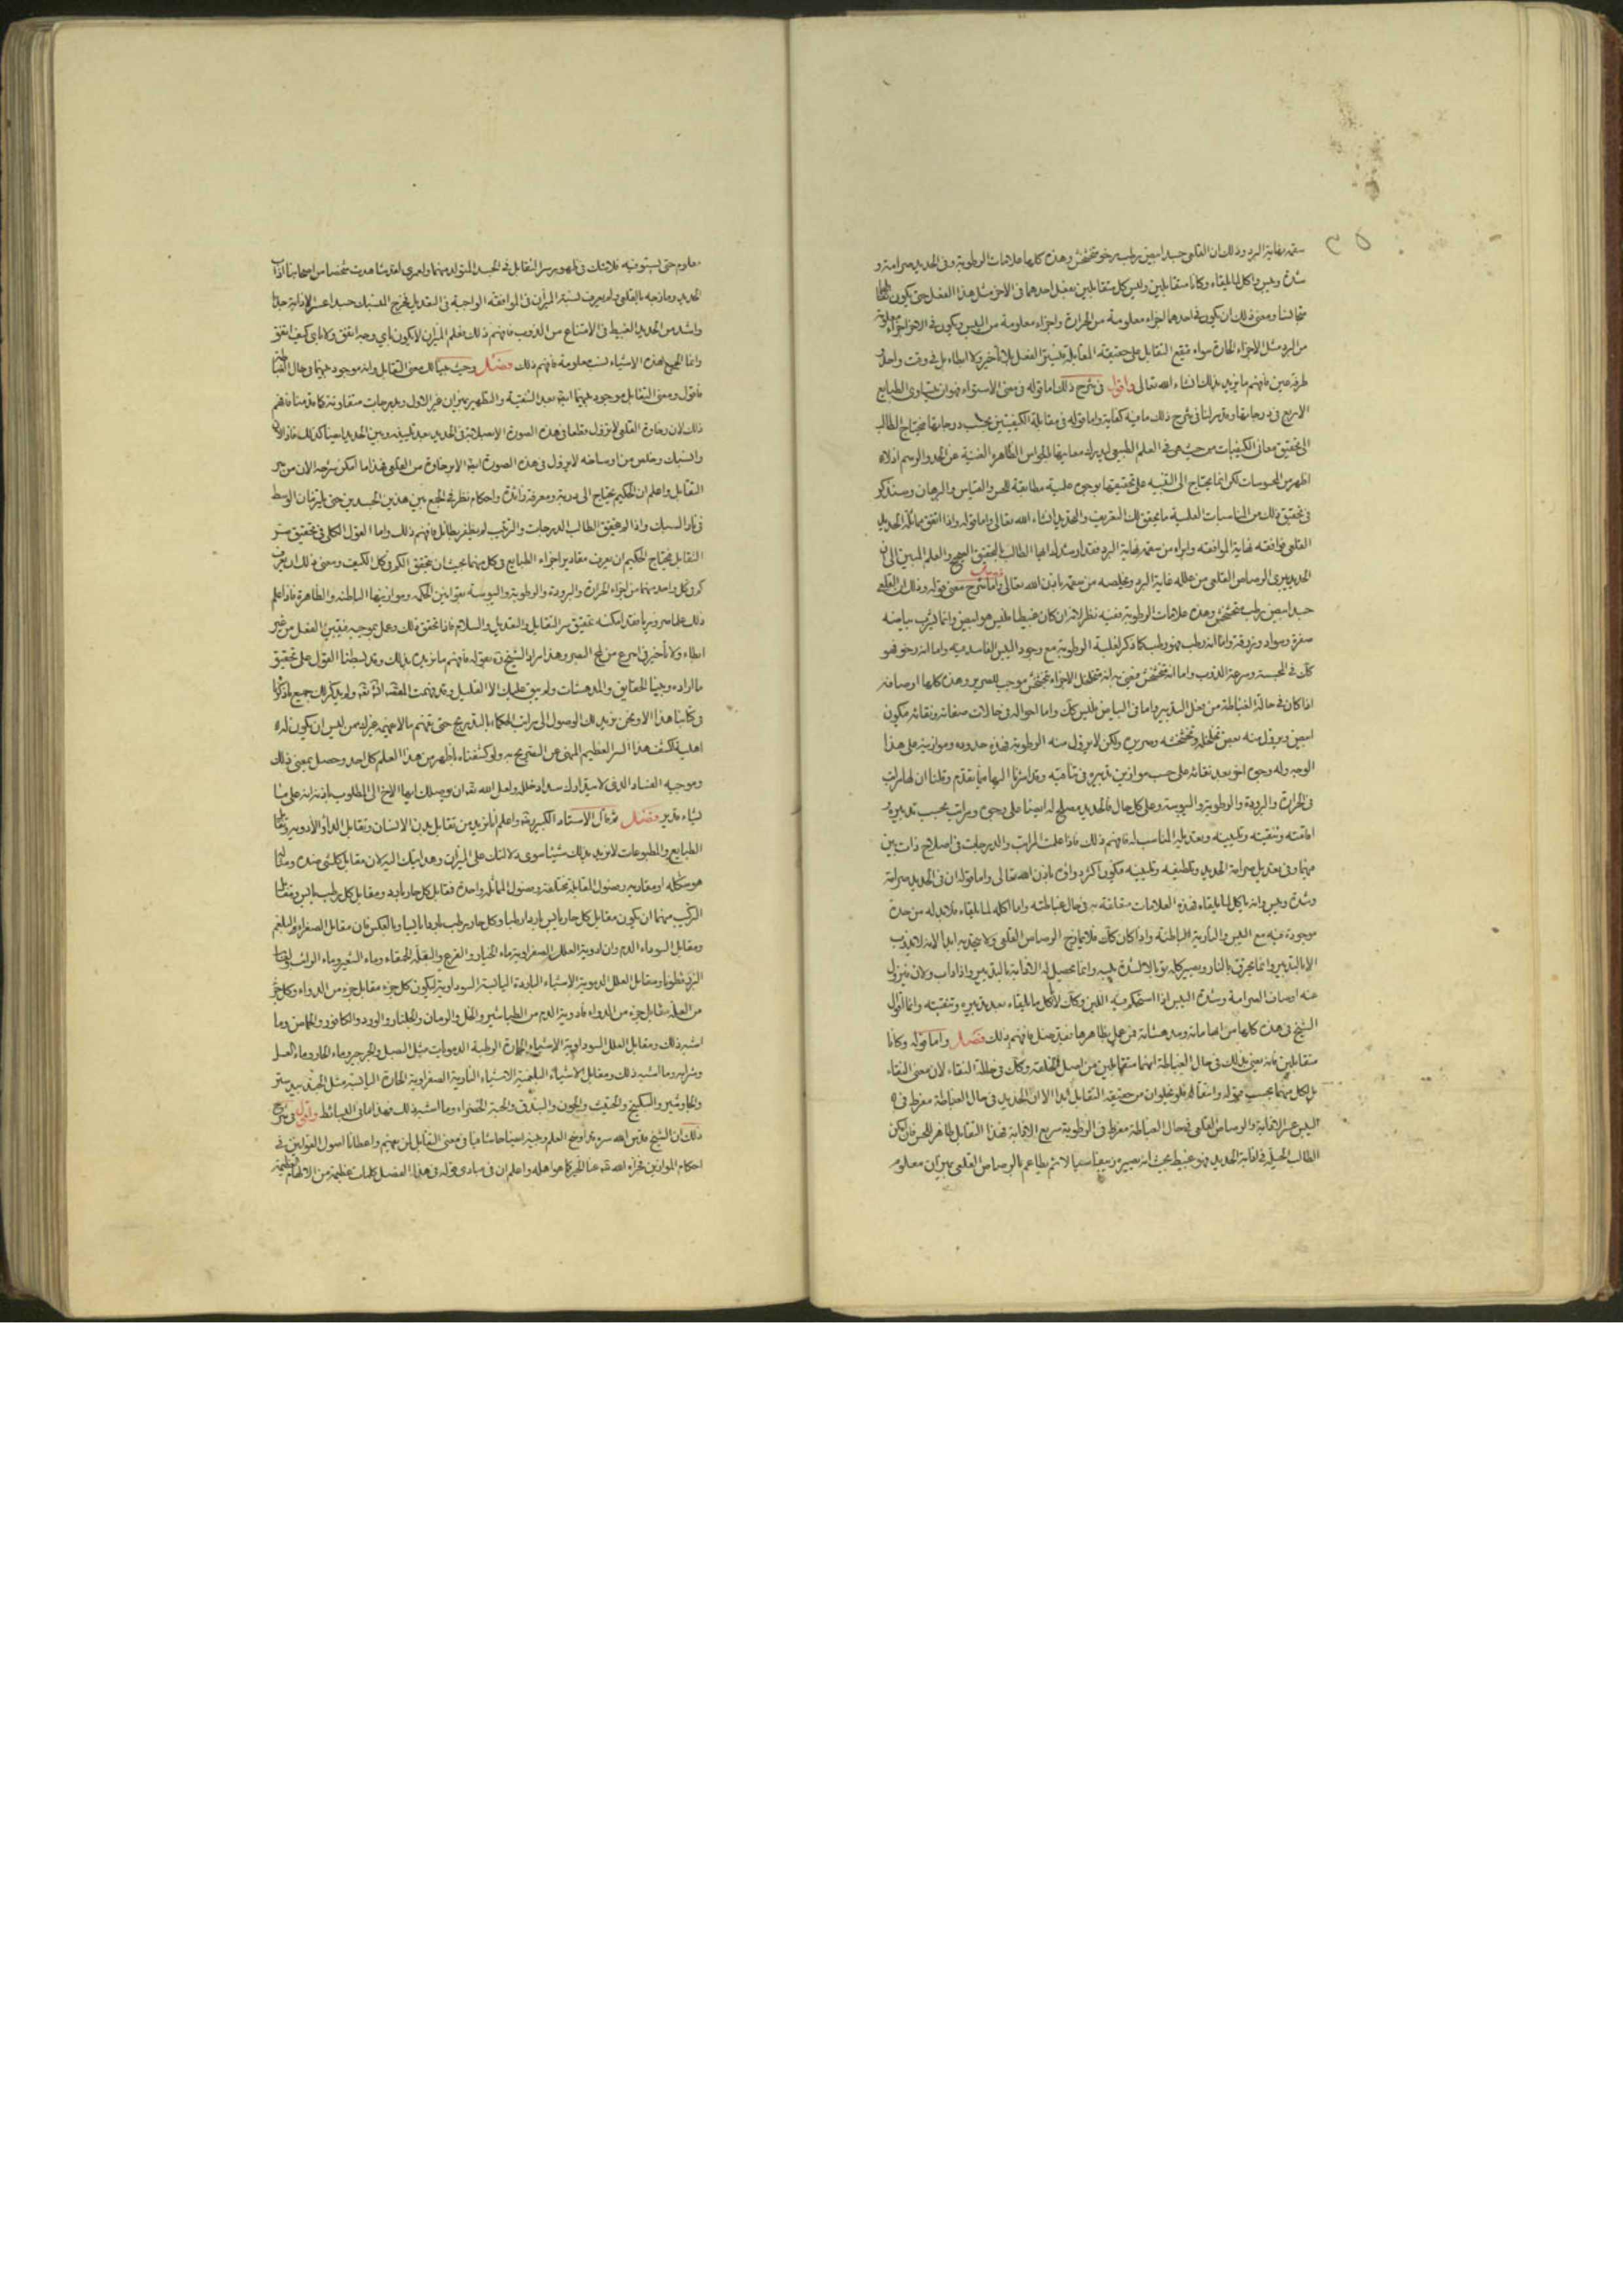 سقمه نهاية البرد وذلك ان القلعى جسد ابيض رطب رخو متخشخش وهذه كلها علامات الرطوبة وفى الحديد صرامة و
شدة ويبس واكل لما يلقاه وكانا متقابلين وليس كل متقابلين يفعل احدهما فى الاخر مثل هذا الفعل حتى يكون
متجانسا ومعنى ذلك ان يكون فى احدهما اجزاء معلومة من الحرارة واجزاء معلومة من اليبس ويكون فى الاخر اجزاء معلومة
من البرد مثل الاجزاء الحارة سواء فيقع التقابل على حقيقة المقابلة الفعل بلا تأخير ولا ابطاء بل فى وقت واحد
طرفة عين فافهم ما نريد بذلك ان شاء الله تعالى واقول فى شرح ذلك اما قوله فى معنى الاستواء فهو ان يتساوى الطبايع
الاربع فى درجاتها فى شرح ذلك ما فيه كفاية واما قوله فى مقابلة الكيفيتين بحسب درجاتها فيحتاج الطالب
الى تحقيق معانى الكيفيات من حيث هى فى العلم الطبيعى ليدرك معانيها بالحواس الظاهرة الغنية عن الحد والرسم اذ لا
اظهر من المحسوسات لكن انما يحتاج الى التنبيه على تحقيقها بوجوه علمية مطابقة للحس والقياس والبرهان وسنذكر
فى تحقيق ذلك من المناسبات العلمية ما يحقق لك التعريف والتحديد ان شاء الله تعالى واما قوله واذا اتفق مماثلة الحديد
القلعى وافقه غاية الموافقة وابراه من سقمه نهاية البرد فقد ارشدك ايها الطالب بالتحقيق الصحيح والعلم المبين الى ان
الحديد يبرى الرصاص القلعى من علله غاية البرد ويخلصه من سقمه باذن الله تعالى واما شرح معنى قوله وذلك ان القلعى
جسد ابيض رطب متخشخش وهذه علامات الرطوبة ففيه نظر لانه ان كان غبيطا فليس هو ابيض وانما يشوب بياضه
صفرة وسواد وزرقة واما انه رطب فهو رطب كما ذكر لغلبة الرطوبة مع وجود اليبس الفاسد فيه واما انه رخو فهو
كك فى المجسة وسرعة الذوب واما انه متخشخش فيعنى به انه متخلخل الاجزاء متخشخش موجب للصرير وهذه كلها اوصافه
اذا كان فى حالة الغباطة من قبل التدبير واما فى البياض فليس كك واما احواله فى حالات صفائه ونقائه فيكون
ابيض ويزول منه بعض تخلخله وتخشخشه وصريره ولكن لا يزول منه الرطوبة فهذه حدوده وموازينه على هذا
الوجه وله وجوه اخر بعد نقائه على حسب موازين تدبيره فى تناهيه وقد اشرنا اليها فيما تقدم وقلنا ان لها مراتب
فى الحرارة والبرودة والرطوبة واليبوسة وعلى كل حال فالحديد مصلح له ايضا على وجوه ومراتب بحسب تدبيره
اقامته وتنقيته وتليينه وتعديله المناسب له فافهم ذلك فاذا علمت المراتب والدرجات فى اصلاح ذات بين
بينهما وفى تعديل صرامة الحديد وتلطيفه وتليينه فيكون اكبر دوائه باذن الله تعالى واما قوله ان فى الحديد صرامة
وشدة ويبس وانه ياكل لما يلقاه فهذه العلامات متعلقة به فى حال غباطته واما اكله لما يلقاه فلا بد له من حدة
موجودة فيه مع اليبس والنارية الباطنة واذا كان كك فلا يمازج الرصاص القلعى ولا يتحد به ابدا لانه لا يذوب
الا بالتدبير وانما يحترق بالنار ويصير كله توبالا لشدة يبسه وانما يحصل له الاذابة بالتدبير واذا ذاب ولان يزول
عنه اوصاف الصرامة وشدة اليبس اذا استحكم فيه اللين وكك لا يأكل ما يلقاه بعد تدبيره وتنقيته وانما اقوال
الشيخ فى هذه كلها من ايهاماته ومدهشاته فمن عمل بظاهرها بغير فافهم ذلك فصل واما قوله وكانا
متقابلين فانه يعنى بذلك فى حال الغباطة انهما متقابلين من اصل الخلقة وكك فى حالة النقاء لان معنى النقاء
بل لكل منهما بحسب قوله واتقانه فلن يخلوان من حقيقة التقابل ابدا الا ان الحديد فى حال الغباطة مفرط فى
اليبس عسر الاذابة والرصاص القلعى فى حال الغباطة مفرط فى الرطوبة سريع الاذابة فهذا التقابل ظاهر للحس فان لكن
الطالب الحيلة فى اذابة الحديد فهو غبيط بحيث انه يصيره زيبقيا سيالا ثم يطاعم بالرصاص القلعى بميزان معلوم
معلوم حتى يستوفيه فلا شك فى ظهور سر التقابل فى الجسد المتولد منهما ولعمرى لقد شاهدت شخصا من اصحابنا اذاب
الحديد ومازجه بالقلعى ولم يعرف نسبة الميزان فى الموافقة الواجبة فى التعديل فخرج المنسبك جسدا عسر الاذابة جدا
واشد من الحديد الغبيط فى الامتناع من الذوب فافهم ذلك فعلم الميزان لا يكون باى وجه اتفق ولا باى كيف اتفق
وانما الجميع هذه الاشياء نسب معلومة فافهم ذلك فصل وحيث بينا لك معنى التقابل وانه موجود بينهما فى حال
فاقول ومعنى التقابل موجود بينهما ايضا بعد التنقية والتطهير بميزان غير الاول وبدرجات متفاوتة كما قدمنا فافهم
ذلك لان رخاوة القلعى لا تزول مطلقا فى هذه الصورة الاصلاحية فى الحديد بعد تليينه وبين الحديد ايضا كذلك
والسبك وخلص من اوساخه لا يزول فى هذه الصورة ايضا الا برخاوة من القلعى فهذا ما امكن شرحه الان من سر
التقابل واعلم ان الحكيم يحتاج الى دربة ومعرفة زائدة واحكام نظر فى الجمع بين هذين الجسدين حتى يلتزمان الوسط
فى نار السبك واذا لم يحقق الطالب الدرجات والتركيب لم يظفر بطائل فافهم ذلك واما القول الكلى فى تحقيق سر
التقابل فيحتاج الحكيم ان يعرف مقادير اجزاء الطبايع فى كل منهما بحيث ان يحقق الكم فى كل الكيف ومعنى ذلك ان يعرف
كم فى كل واحد منهما من اجزاء الحرارة والبرودة والرطوبة واليبوسة بقوانين الحكمة وموازينها الباطنة والظاهرة فاذا علم
ذلك علما ضروريا فقد امكنه تحقيق سر التقابل والتعديل والسلام فاذا تحقق ذلك وعمل بموجبه فيقين الفعل من غير
ابطاء ولا تأخير فى اسرع من لمح البصر وهذا مراد الشيخ ره بقوله فافهم ما نريده بذلك وقد بسطنا القول على تحقيق
ما اراده وبينا الحقايق والمدهشات ولم يبق عليك الا القليل وقد فهمت القصد ان شاء الله تعالى ولم يكن لك جميع ما ذكرنا
فى كتابنا هذا الا ونحن نريد لك الوصول الى مراتب الحكماء بالتدريج حتى تفهم ما لا يفهمه غيرك ممن ليس ان يكون له
اهلية لكشف هذا السر العظيم المنهى عن التصريح به ولو كشفناه لظهر من هذا العلم كل احد وحصل بمعنى ذلك
وموجبه الفساد الذى لا سبيل ولعل الله تعالى ان يوصلك ايها الاخ الى المطلوب باذنه انه على ما
يشاء قدير فصل ثم قال الاستاد الكبير ره واعلم انا نريد من تقابل بدن الانسان وتقابل الداء والادوية
الطبايع والمطبوعات لا نريد بذلك شيئا سوى دلالتك على الميزان وهدايتك اليه لان مقابل كل شئ ضده
هو شكله او مقاربه وفصول المقابلة مختلفة وفصول المماثلة واحدة فمقابل كل حار بارد ومقابل كل رطب يابس
المركب منهما ان يكون مقابل كل حار يابس باردا رطبا وكل حار رطب باردا يابسا وبالعكس فان مقابل الصفراء البلغم
ومقابل السوداء الدم وان ادوية العلل الصفراوية ماء الخيار والقرع والبقلة الحمقاء وماء الشعير وماء الرائب
البزرقطونا ومقابل العلل الدموية الاشياء الباردة اليابسة السوداوية ليكون كل جزء مقابل جزء من الدواء وكل جزء
من العلة مقابل جزء من الدواء فادوية الدم من الطباشير والخل والرمان والجلنار والورد والكافور والحماض وما
اشبه ذلك ومقابل العلل السوداوية الاشياء الحارة الرطبة الدمويات مثل العسل والجرجير وماء الحار وماء العسل
وشرابه وما اشبه ذلك ومقابل الاشياء البلغمية الاشياء النارية الصفراوية الحارة اليابسة مثل الجندبيدستر
والجاوشير والسكبينج والحلتيت والجوز والبندق والحبة الخضراء وما اشبه ذلك فهذا ما فى البسائط واقول فى شرح
ذلك ان الشيخ قدس الله سره قد اوضح العلم وبينه ايضا حاشافيا فى معنى التقابل لمن يفهم واعطانا اصول القوانين فى
احكام الموازين فجزاه الله تعالى عنا الخير كما هو اهله واعلم ان فى مبادى قوله فى هذا الفصل كلمات عظيمة من الالهام